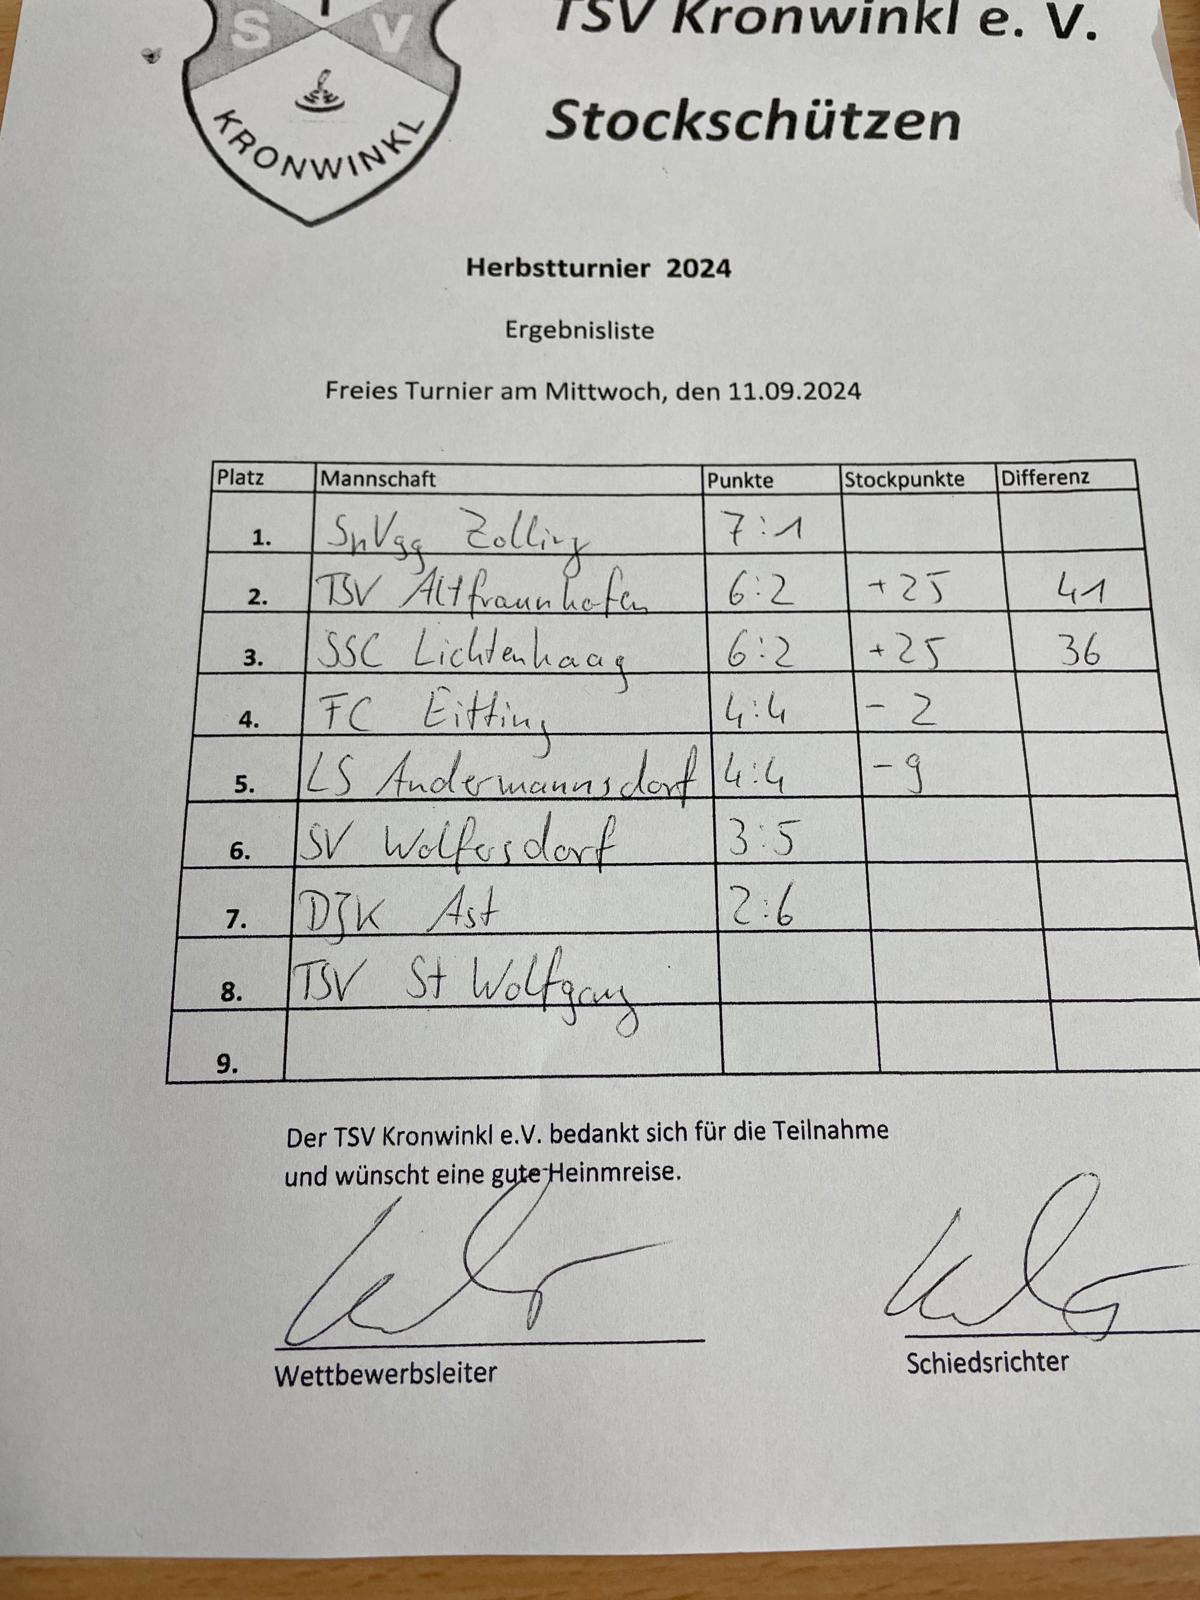 S V
KRONWINKL
TSV Kronwinkl e. V.
Stockschützen
Herbstturnier 2024
Ergebnisliste
Freies Turnier am Mittwoch, den 11.09.2024
Platz Mannschaft Punkte Stockpunkte Differenz
1. SpVgg Zolling 7:1
2. TSV Altfraunhofen 6:2 +25 41
3. SSC Lichtenhaag 6:2 +25 36
4. FC Eitting 4:4 - 2
5. LS Andermannsdorf 4:4 - 9
6. SV Wolfersdorf 3:5
7. DJK Ast 2:6
8. TSV St Wolfgang
9.
Der TSV Kronwinkl e.V. bedankt sich für die Teilnahme
und wünscht eine gute Heinmreise.
Wettbewerbsleiter Schiedsrichter